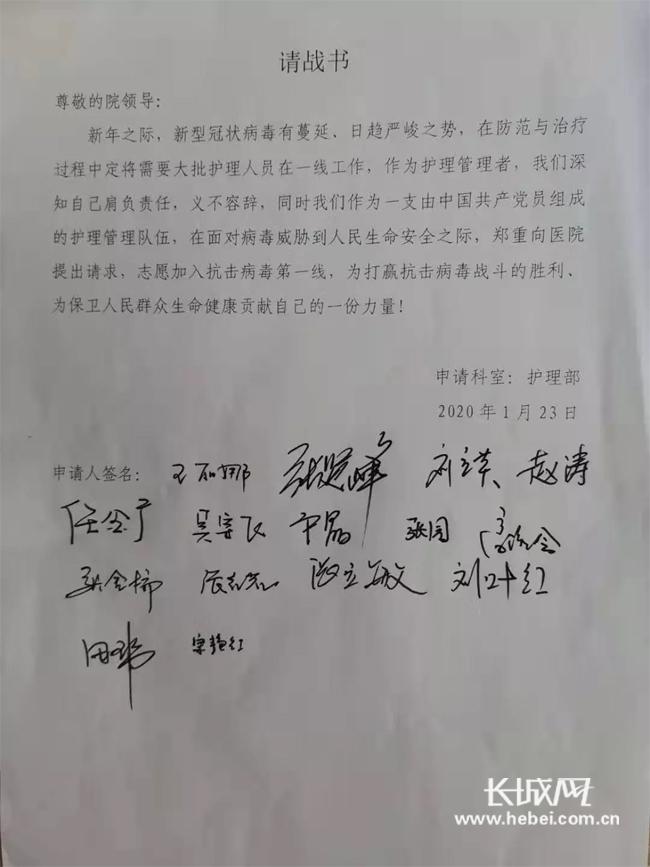 请战书
尊敬的院领导：
新年之际，新型冠状病毒有蔓延、日趋严峻之势，在防范与治疗
过程中定将需要大批护理人员在一线工作，作为护理管理者，我们深
知自己肩负责任，义不容辞，同时我们作为一支由中国共产党员组成
的护理管理队伍，在面对病毒威胁到人民生命安全之际，郑重向医院
提出请求，志愿加入抗击病毒第一线，为打赢抗击病毒战斗的胜利、
为保卫人民群众生命健康贡献自己的一份力量！
申请科室：护理部
2020年1月23日
申请人签名：王丽娜 赵涛
刘叶红
田玮 宋艳红
长城网
www.hebei.com.cn